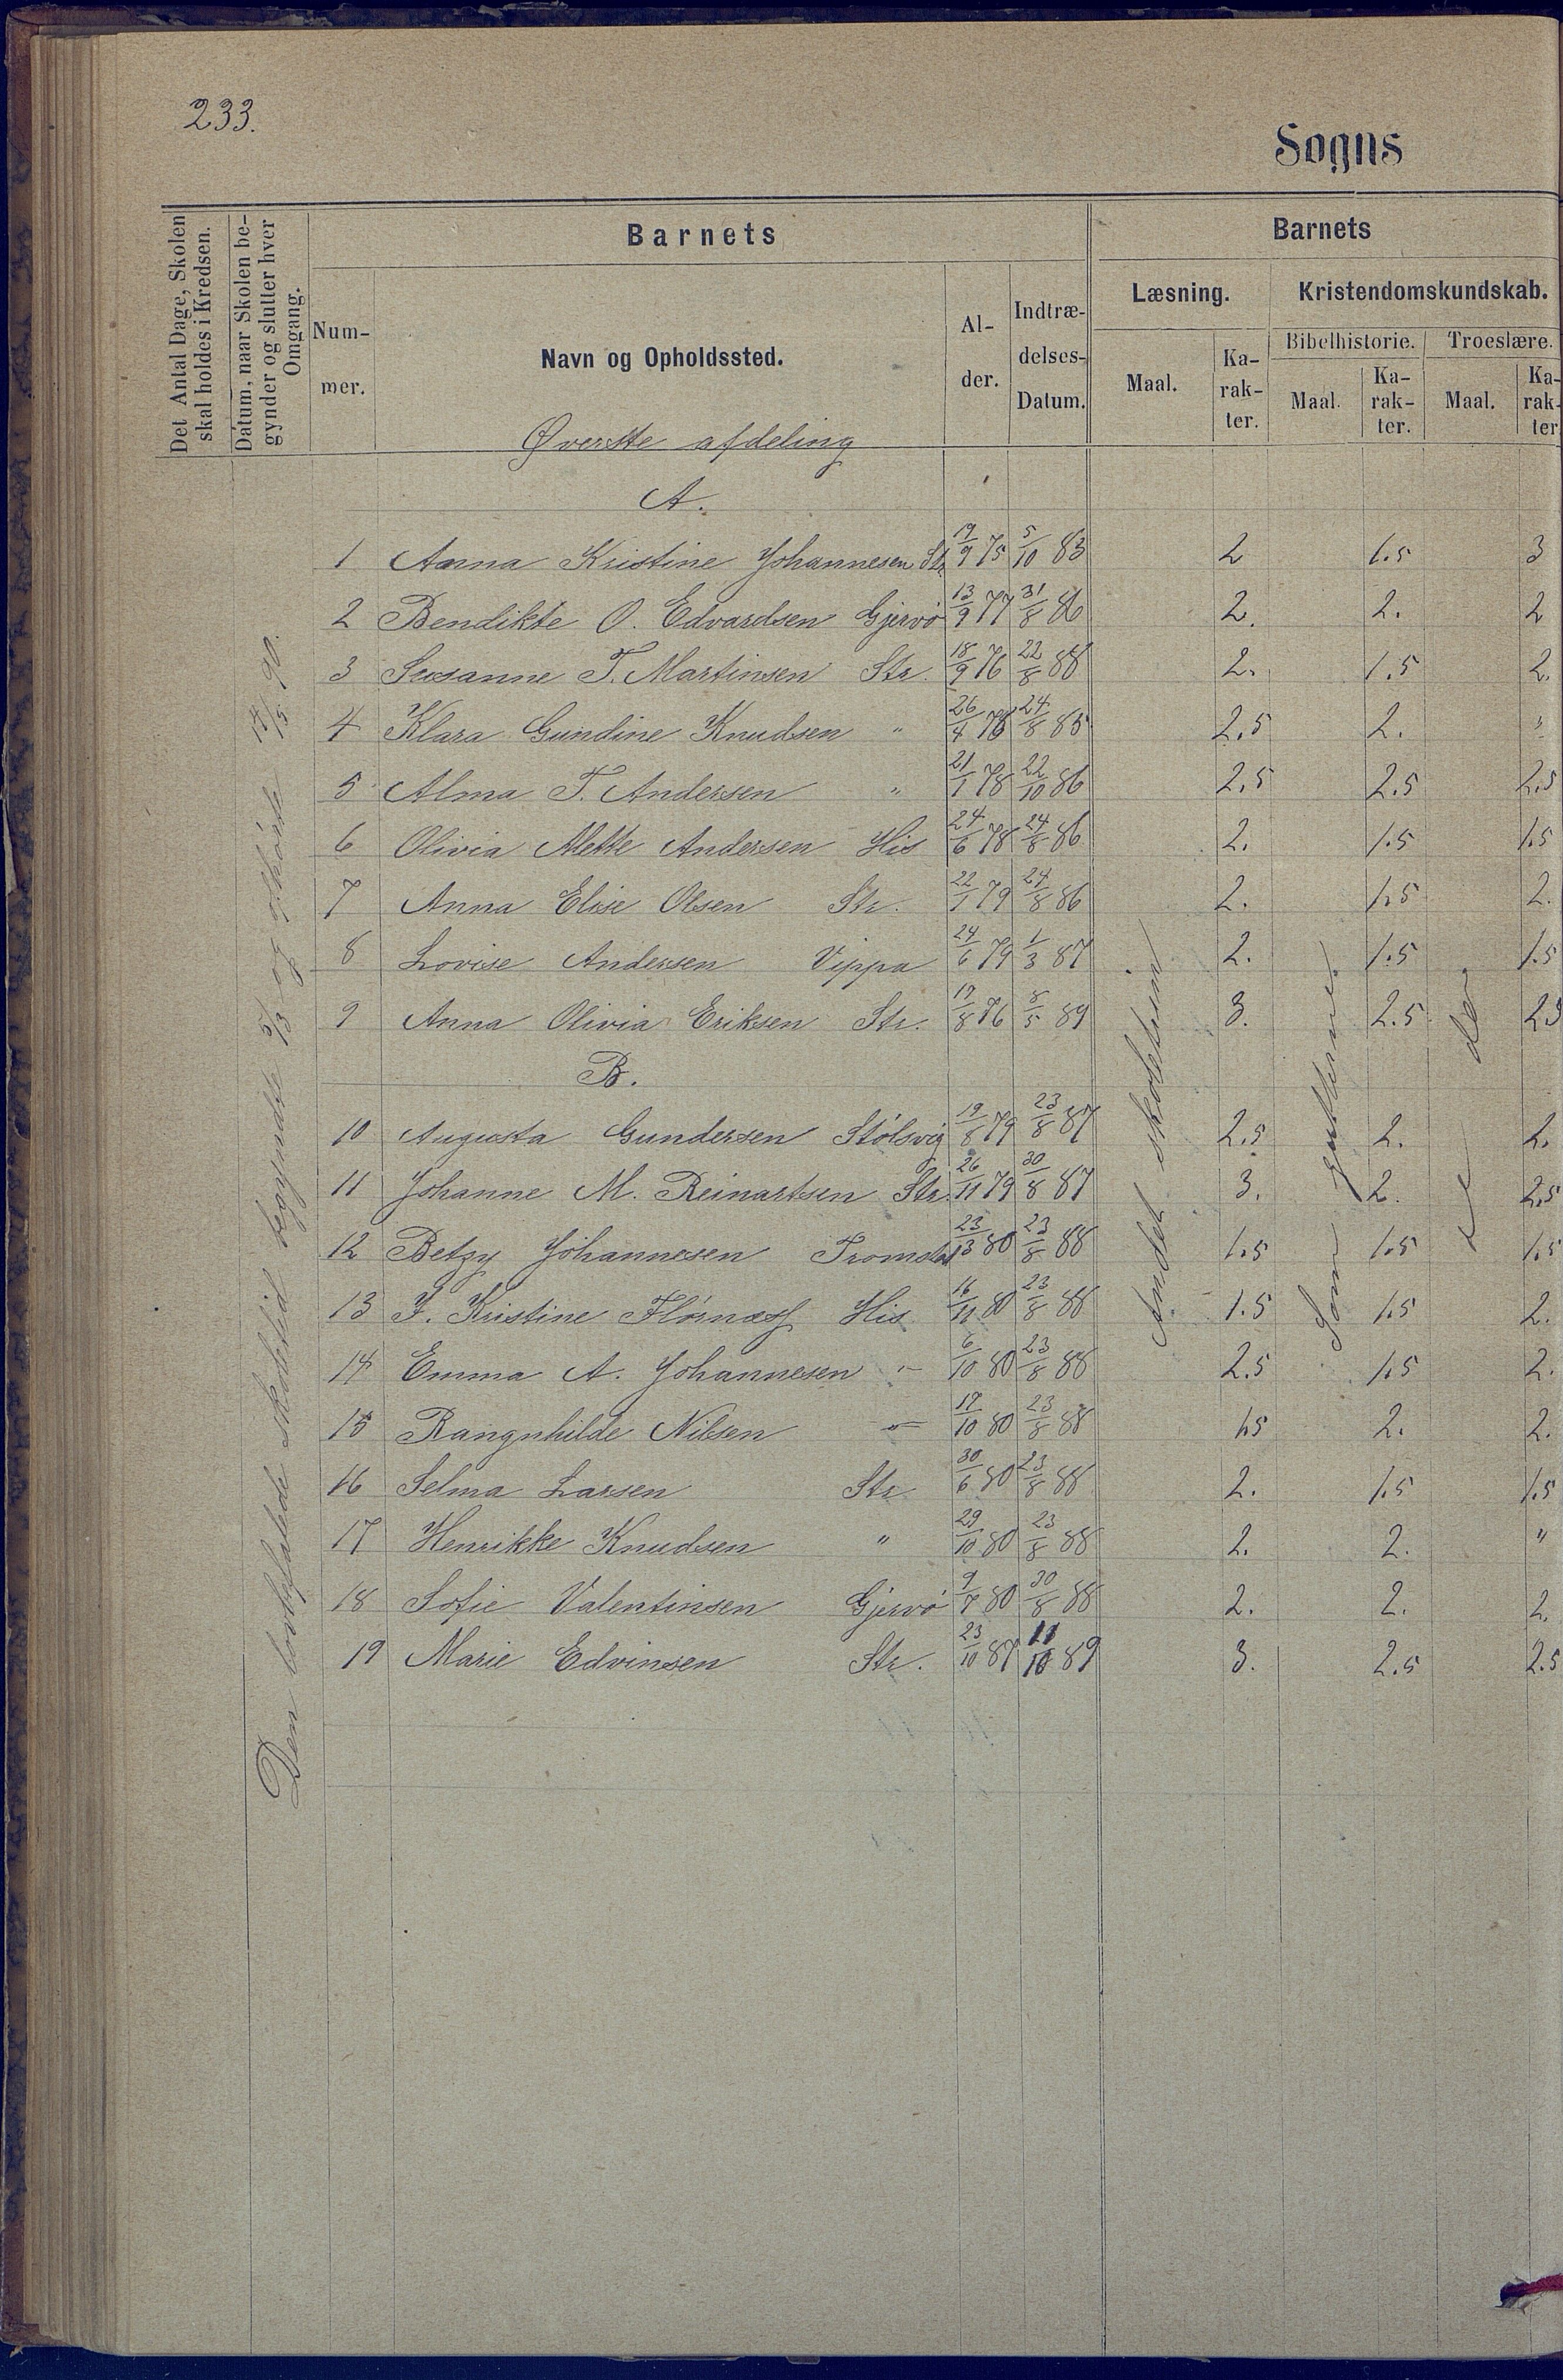 233.
Sogns
Det Antal Dage, Skolen
skal holdes i Kredsen.
Datum, naar Skolen be-
gynder og slutter hver
Omgang.
Barnets
Num-
mer.
Navn og Opholdssted.
Al-
der.
Indtræ-
delses-
Datum.
Barnets
Læsning.
Kristendomskundskab.
Maal.
Ka-
rak-
ter.
Bibelhistorie.
Troeslære.
Maal.
Ka-
rak-
ter.
Maal.
Ka-
rak-
ter
Øverste afdeling
A.
1 Anna Kristine Johannesen Str 19/9 75 5/10 83 2 1.5 3
2 Bendikte O. Edvardsen Gjervø 13/9 77 31/8 86 2. 2. 2
3 Susanne T. Martinsen Str. 18/9 76 22/8 88 2. 1.5 2.
4 Klara Gundine Knudsen " 26/4 78 24/8 85 2.5 2. "
5 Alma T. Andersen " 21/1 78 22/10 86 2.5 2.5 2.5
6 Olivia Mette Andersen His 24/6 78 24/8 86 2. 1.5 1.5
7 Anna Elise Olsen Str. 22/1 79 24/8 86 2. 1.5 2.
8 Lovise Andersen Vippa 24/6 79 1/3 87 2. 1.5 1.5
9 Anna Olivia Eriksen Str. 17/8 76 8/5 89 3. 2.5 2.5
B.
10 Augusta Gundersen Stølsvig 19/8 79 23/8 87 2.5 2. 2.
11 Johanne M. Reinartsen Str. 26/11 79 30/8 87 3. 2. 2.5
12 Betzy Johannesen 23/3 80 23/8 88 1.5 1.5 1.5
13 J. Kristine Flørnæss His 16/11 80 23/8 88 1.5 1.5 2.
14 Emma A. Johannesen " 6/10 80 23/8 88 2.5 1.5 2.
15 Rangnhilde Nilsen " 17/10 80 23/8 88 1.5 2. 2.
16 Selma Larsen Str 30/6 80 23/8 88 2. 1.5 1.5
17 Henrikke Knudsen " 29/10 80 23/8 88 2. 2. "
18 Sofie Valentinsen Gjervø 9/7 80 30/8 88 2. 2. 2.
19 Marie Edvinsen Str. 23/10 87 11/10 89 3. 2.5 2.5
Den lovbefalede skoletid begyndte 5/3 og ophørte 14/5 90.
Andet skoletrin
Som gutterne.